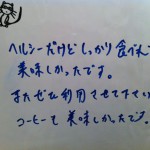 ヘルシーだけどしっかり食べれて
美味しかったです。
またぜひ利用させて下さい
コーヒーも美味しかったです。